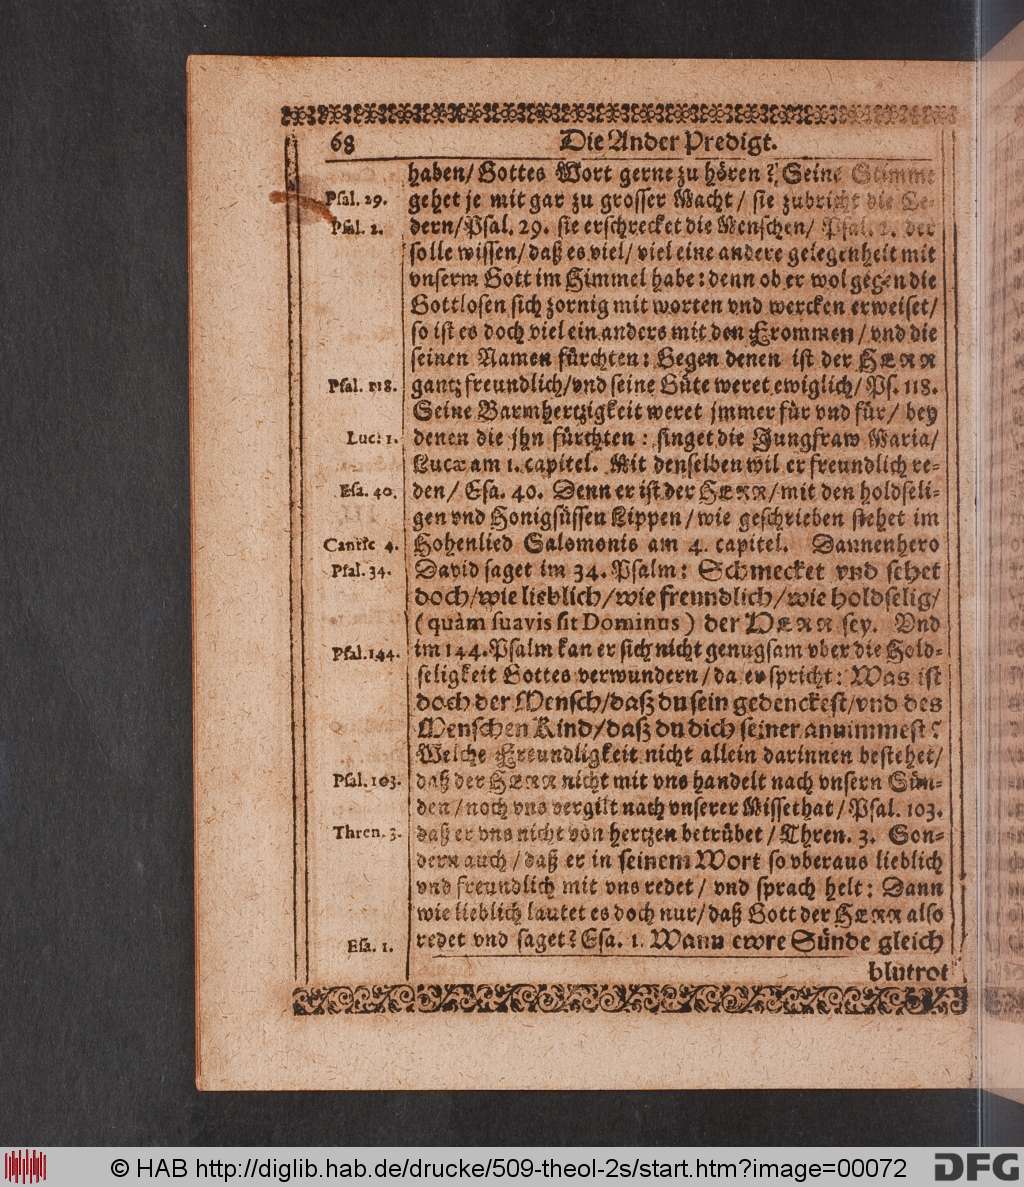 68 Die Ander Predigt.
haben/ Gottes Wort gerne zu hören? Seine Stimme
Psal. 29. gehet je mit gar zu grosser Macht/ sie zubricht die Ce-
Psal. 2. dern/Psal. 29. sie erschrecket die Menschen/ Psal. 2. der
solle wissen/ daß es viel/ viel eine andere gelegenheit mit
vnserm Gott im Himmel habe: denn ob er wol gegen die
Gottlosen sich zornig mit worten vnd wercken erweiset/
so ist es doch viel ein anders mit den Frommen/ vnd die
seinen Namen fürchten: Gegen denen ist der HERR
Psal. 118. gantz freundlich/vnd seine Güte weret ewiglich/ Ps. 118.
Seine Barmhertzigkeit weret jmmer für vnd für/ bey
Luc: 1. denen die jhn fürchten: singet die Jungfraw Maria/
Lucæ am 1. capitel. Mit denselben wil er freundlich re-
Esa. 40. den/ Esa. 40. Denn er ist der HERR/mit den holdseli-
gen vnd Honigsüssen Lippen/wie geschrieben stehet im
Cantic 4. Hohenlied Salomonis am 4. capitel. Dannenhero
Psal. 34. David saget im 34. Psalm: Schmecket vnd sehet
doch/wie lieblich/wie freundlich/wie holdselig/
(quàm suavis sit Dominus) der HERR sey. Vnd
Psal. 144. im 144. Psalm kan er sich nicht genugsam vber die Hold-
seligkeit Gottes verwundern/da er spricht: Was ist
doch der Mensch/daß du sein gedenckest/vnd des
Menschen Kind/daß du dich seiner annimmest?
Welche Freundligkeit nicht allein darinnen bestehet/
Psal. 103. daß der HERR nicht mit vns handelt nach vnsern Sün-
den/noch vns vergilt nach vnserer Missethat/Psal. 103.
Thren. 3. daß er vns nicht von hertzen betrübet/Thren. 3. Son-
dern auch/daß er in seinem Wort so vberaus lieblich
vnd freundlich mit vns redet/ vnd sprach helt: Dann
wie lieblich lautet es doch nur/daß Gott der HERR also
Esa. 1. redet vnd saget? Esa. 1. Wann ewre Sünde gleich
blutrot
© HAB http://diglib.hab.de/drucke/509-theol-2s/start.htm?image=00072 DFG